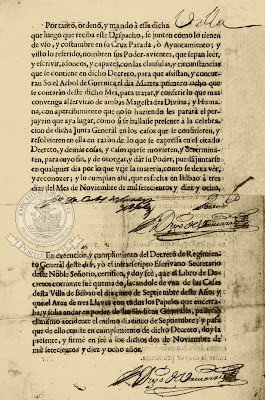 Por tanto, ordeno, y mando à essa dicha Villa
que luego que reciba este Despacho, se junten como lo tienen de
vso, y costumbre en su Cruz Parada, ò Ayuntamiento; y
visto lo referido, nombren sus Poder-avientes, que sepan leer,
y escrivir, idoneos, y capazes, con las clausulas, y circunstancias
que se contiene en dicho Decreto, para que asistan, y concur-
ran So el Arbol de Guernica el dia Martes primero ocho que
se contaràn deste dicho Mes, para tratar, y conferir lo que mas
convenga al servicio de ambas Magestades Divina, y Huma-
na, con apercibimiento que no lo haziendo les parará el per-
juyzio que aya lugar, como si se hallasse presente à la celebra-
cion de dicha Junta General en los casos que se confirieren, y
resolvieren en ella en razon de lo que se expressa en el citado
Decreto, y demàs cosas, y casos que se movieren, y determina-
ren, para cuyo fin, y de otorgar, y dàr su Poder, pueda juntarse
en qualquier dia por lo que vrge la materia, como se dexa vèr,
y reconocer; y lo cumplan assi, que es fecha en Bilbao à tres
dias del Mes de Noviembre de mil setecientos y diez y ocho,
En execucion, y cumplimiento del Decreto de Regimiento
General deste dia, yo el infrascripto Escrivano Secretario
deste Noble Señorio, certifico, y doy feè, que el Libro de De-
cretos corriente fuè quemado, sacandole de vna de las Casas
desta Villa de Bilbao el dia cinco de Septiembre deste Año; y
que el Arca de tres Llaves con todos los Papeles que encerra-
ba, y solia andar en poder de los Sindicos Generales, padeciò
el mismo accidente el mismo dia cinco de Septiembre; y para
que de ello conste en cumplimiento de dicho Decreto, doy la
presente, y firmè en feè à los dichos dos de Noviembre de
mil setecientos y diez y ocho años.